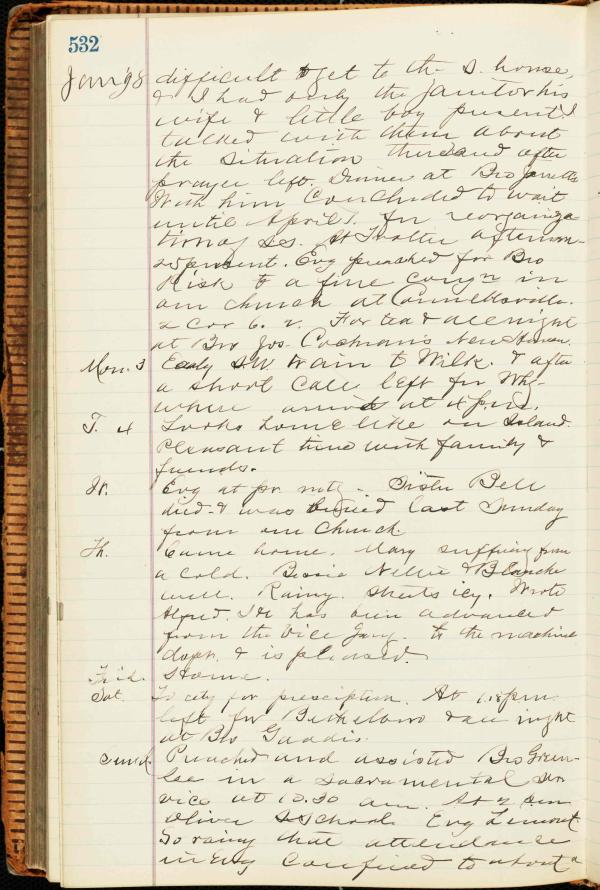 532
Jan'98 difficult to get to the S. house,
& I had only the janitor his
wife & little boy present. I
talked with them about
the situation there and after
prayer left. Dinner at Bro
With him concluded to wait
until April 1. for reorganiza-
tion of SS. At Trotter afternoon
25 present. Evg preached for Bro
Risk to a fine congn in
our church at Connellsville.
2 Cor 6. 2. For tea & all night
at Bro Jos. Cochran's New Haven.
Mon. 3 Early S.W. train to Wilk. & after
a short call left for Whg.
where arrived at 4 p.m.
T. 4 Looks home like on Island.
Pleasant time with family &
friends.
W. Evg at pr. mtg. Sister Bell
died & was buried last Sunday
from our Church.
Th. Came home. Mary suffering from
a cold. Bessie Nellie & Blanche
well. Rainy. Streets icy. Wrote
Alfred. He has been advanced
from the Vice Gang. to the machine
dept. & is pleased.
Frid. Home.
Sat. To city for prescription. At 1.18 pm
left for & all night
at Bro Gaddis.
Sund. Preached and assisted Bro Green-
lee in a sacramental ser-
vice at 10.30 am. At 2 pm
Oliver S School. Evg Lemont.
So rainy that attendance
in Evg confined to about a